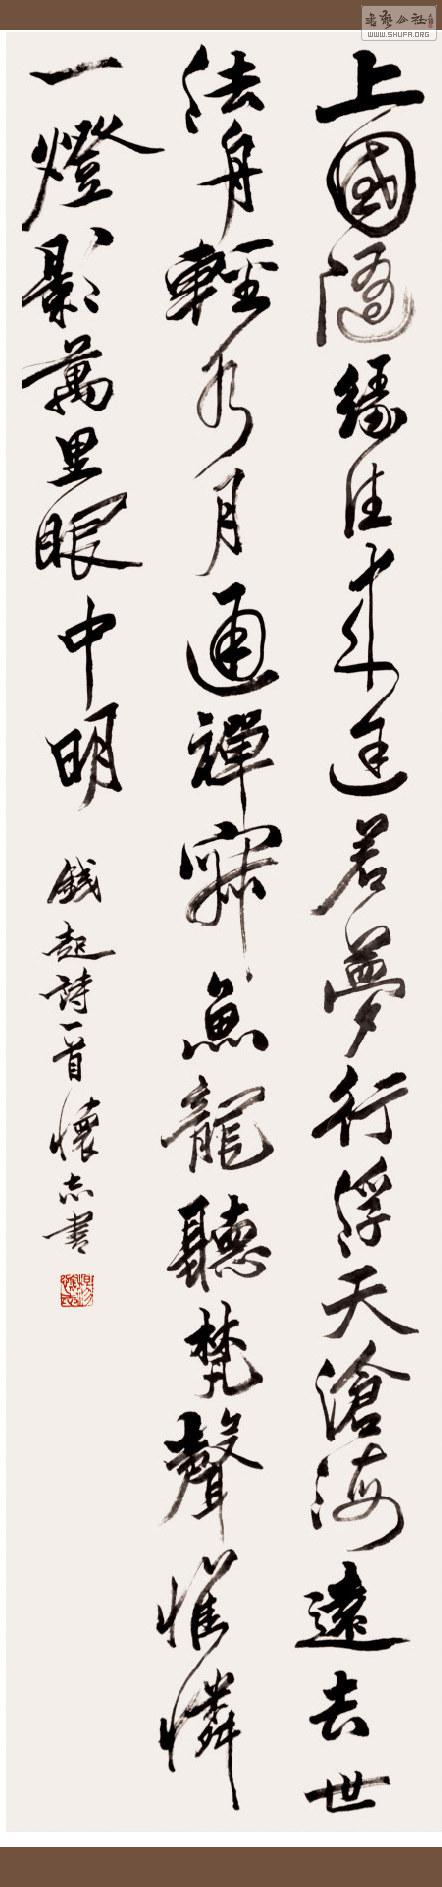 上國隨緣住來途若夢行浮天滄海遠去世
法舟輕水月通禪寂魚龍聽梵聲惟憐
一燈影萬里眼中明
錢起詩一首懷志書
書藝公社
WWW.SHUFA.ORG